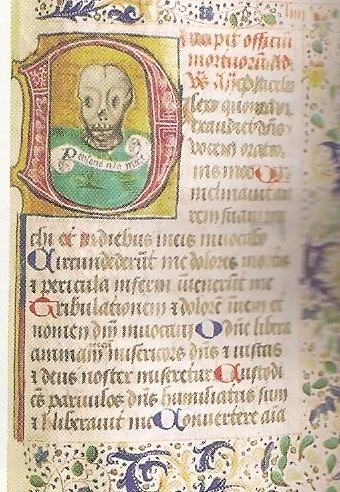 Incipit officiu
mortuorum ad
Dilexi quoniam
exaudiet dns
vocem oratio
nis mee
inclinavit au
rem suam
chi et in diebus meis invocabo
Circundederut me dolores mortis
et pericula inferni invenerut me
Tribulationem et dolore inveni et
nomen dni invocavi O dne libera
animam meam misericors dns et iustus
et deus noster miseretur Custodi
es parvulos dns humiliatus sum
et liberavit me Convertere aia